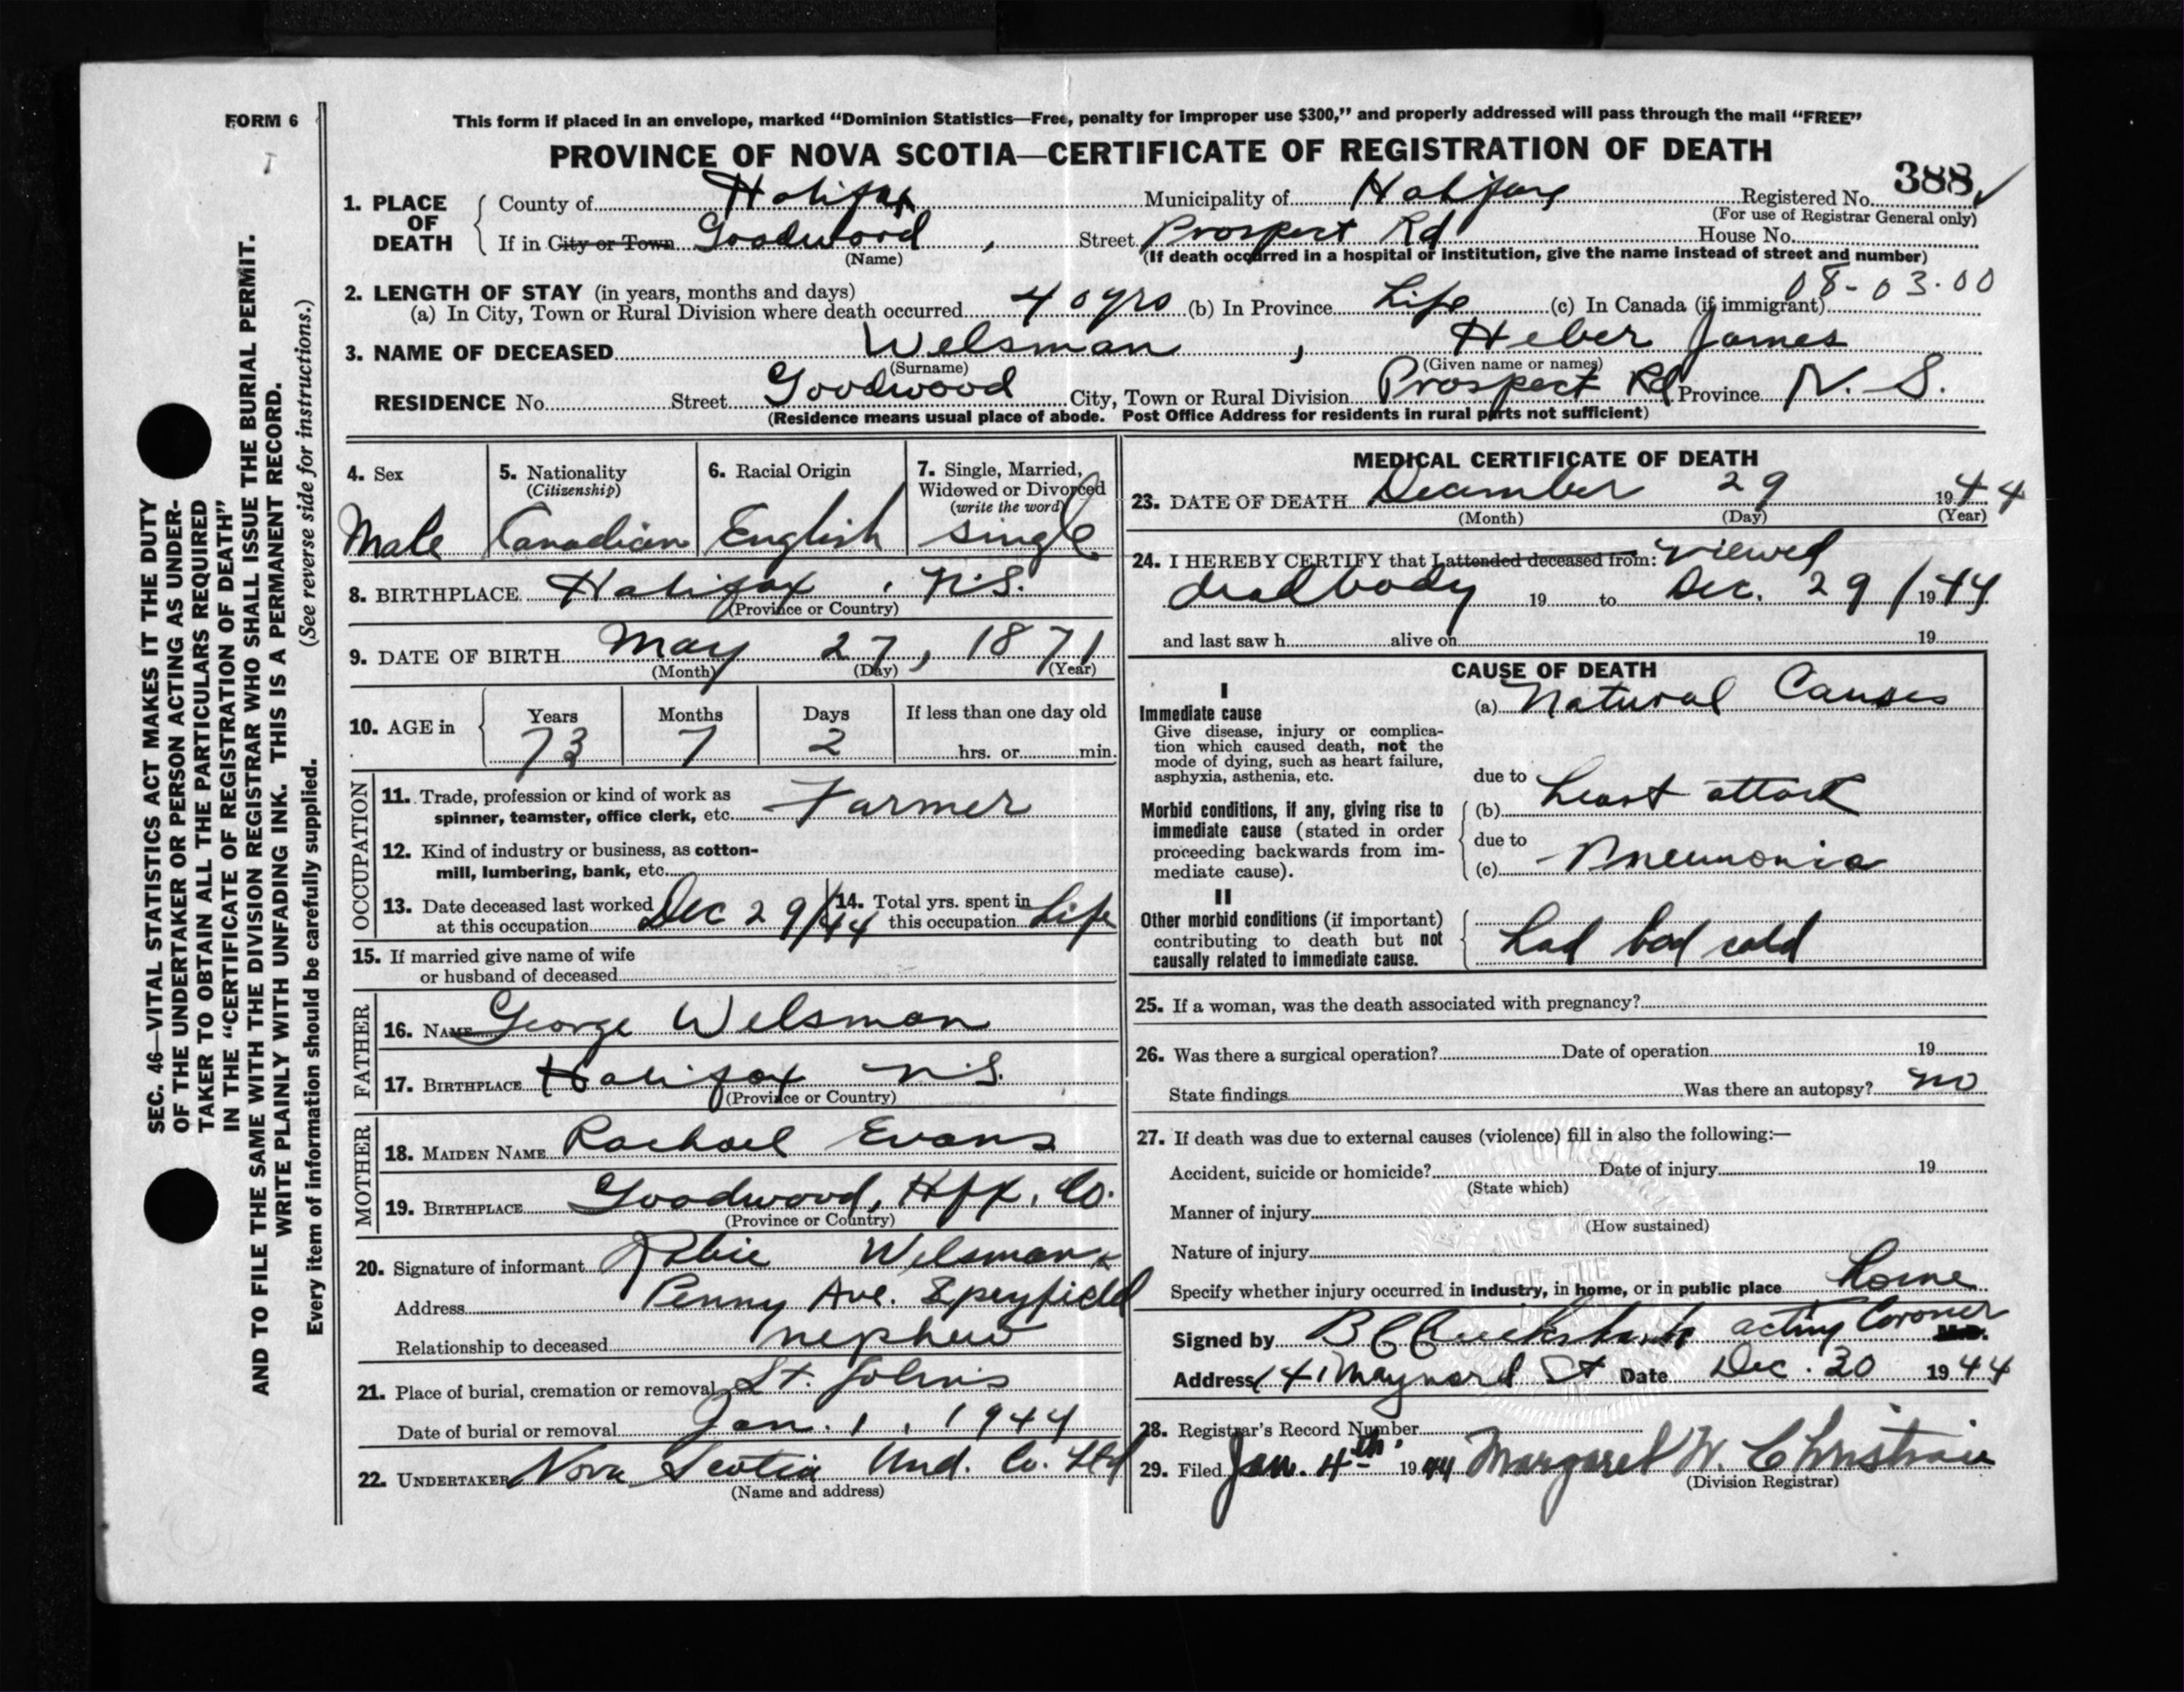 FORM 6
This form if placed in an envelope, marked "Dominion Statistics—Free, penalty for improper use $300," and properly addressed will pass through the mail "FREE"
PROVINCE OF NOVA SCOTIA—CERTIFICATE OF REGISTRATION OF DEATH
388
1. PLACE OF DEATH County of Halifax Municipality of Halifax Registered No.
(For use of Registrar General only)
If in City or Town Goodwood, Street Prospect Rd House No.
(Name) (If death occurred in a hospital or institution, give the name instead of street and number)
08-03.00
2. LENGTH OF STAY (in years, months and days)
(a) In City, Town or Rural Division where death occurred 40 yrs (b) In Province Life (c) In Canada (if immigrant)
3. NAME OF DECEASED Welsman, Heber James
(Surname) (Given name or names)
RESIDENCE No. Street Goodwood City, Town or Rural Division Prospect Rd Province N. S.
(Residence means usual place of abode. Post Office Address for residents in rural parts not sufficient)
4. Sex 5. Nationality (Citizenship) 6. Racial Origin 7. Single, Married, Widowed or Divorced (write the word)
Male Canadian English Single
8. BIRTHPLACE Halifax, N.S.
(Province or Country)
9. DATE OF BIRTH May 27, 1871
(Month) (Day) (Year)
10. AGE in Years Months Days If less than one day old
73 7 2 hrs. or min.
OCCUPATION
11. Trade, profession or kind of work as
spinner, teamster, office clerk, etc. Farmer
12. Kind of industry or business, as cotton-
mill, lumbering, bank, etc.
13. Date deceased last worked at this occupation Dec 29/44 14. Total yrs. spent in this occupation Life
15. If married give name of wife
or husband of deceased
FATHER
16. NAME George Welsman
17. BIRTHPLACE Halifax N.S.
(Province or Country)
MOTHER
18. MAIDEN NAME Rachael Evans
19. BIRTHPLACE Goodwood, Hfx. Co.
(Province or Country)
20. Signature of informant Welsman
Address Penny Ave. Spryfield
Relationship to deceased nephew
21. Place of burial, cremation or removal St. John's
Date of burial or removal Jan. 1, 1944
22. UNDERTAKER Nova Scotia Und. Co. Ltd
(Name and address)
MEDICAL CERTIFICATE OF DEATH
23. DATE OF DEATH December 29 1944
(Month) (Day) (Year)
24. I HEREBY CERTIFY that I attended deceased from: viewed
dead body 19 to Dec. 29/ 1944
and last saw h alive on 19
CAUSE OF DEATH
I
Immediate cause (a) Natural Causes
Give disease, injury or complica-
tion which caused death, not the
mode of dying, such as heart failure,
asphyxia, asthenia, etc.
due to
Morbid conditions, if any, giving rise to (b) heart attack
immediate cause (stated in order
proceeding backwards from im- due to
mediate cause). (c) Pneumonia
II
Other morbid conditions (if important)
contributing to death but not had bad cold
causally related to immediate cause.
25. If a woman, was the death associated with pregnancy?
26. Was there a surgical operation? Date of operation 19
State findings Was there an autopsy? no
27. If death was due to external causes (violence) fill in also the following:—
Accident, suicide or homicide? Date of injury 19
(State which)
Manner of injury
(How sustained)
Nature of injury
Specify whether injury occurred in industry, in home, or in public place home
Signed by acting Coroner M.D.
Address 141 Maynard St Date Dec. 30 1944
28. Registrar's Record Number
29. Filed Jan. 4th 1944 Margaret W. Christian
(Division Registrar)
SEC. 46—VITAL STATISTICS ACT MAKES IT THE DUTY
OF THE UNDERTAKER OR PERSON ACTING AS UNDER-
TAKER TO OBTAIN ALL THE PARTICULARS REQUIRED
IN THE "CERTIFICATE OF REGISTRATION OF DEATH"
AND TO FILE THE SAME WITH THE DIVISION REGISTRAR WHO SHALL ISSUE THE BURIAL PERMIT.
WRITE PLAINLY WITH UNFADING INK. THIS IS A PERMANENT RECORD.
Every item of information should be carefully supplied. (See reverse side for instructions.)